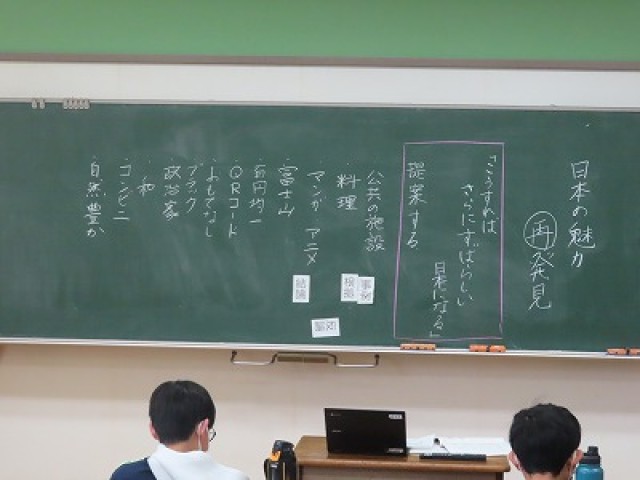 日本の魅力
再発見
「こうすれば
さらにすばらしい
日本になる」
提案する
公共の施設
・料理
・マンガ アニメ
・富士山
・百円均一
・QRコード
・おもてなし
・ブラック
・政治家
・和
・コンビニ
・自然豊か
事例
根拠
結論